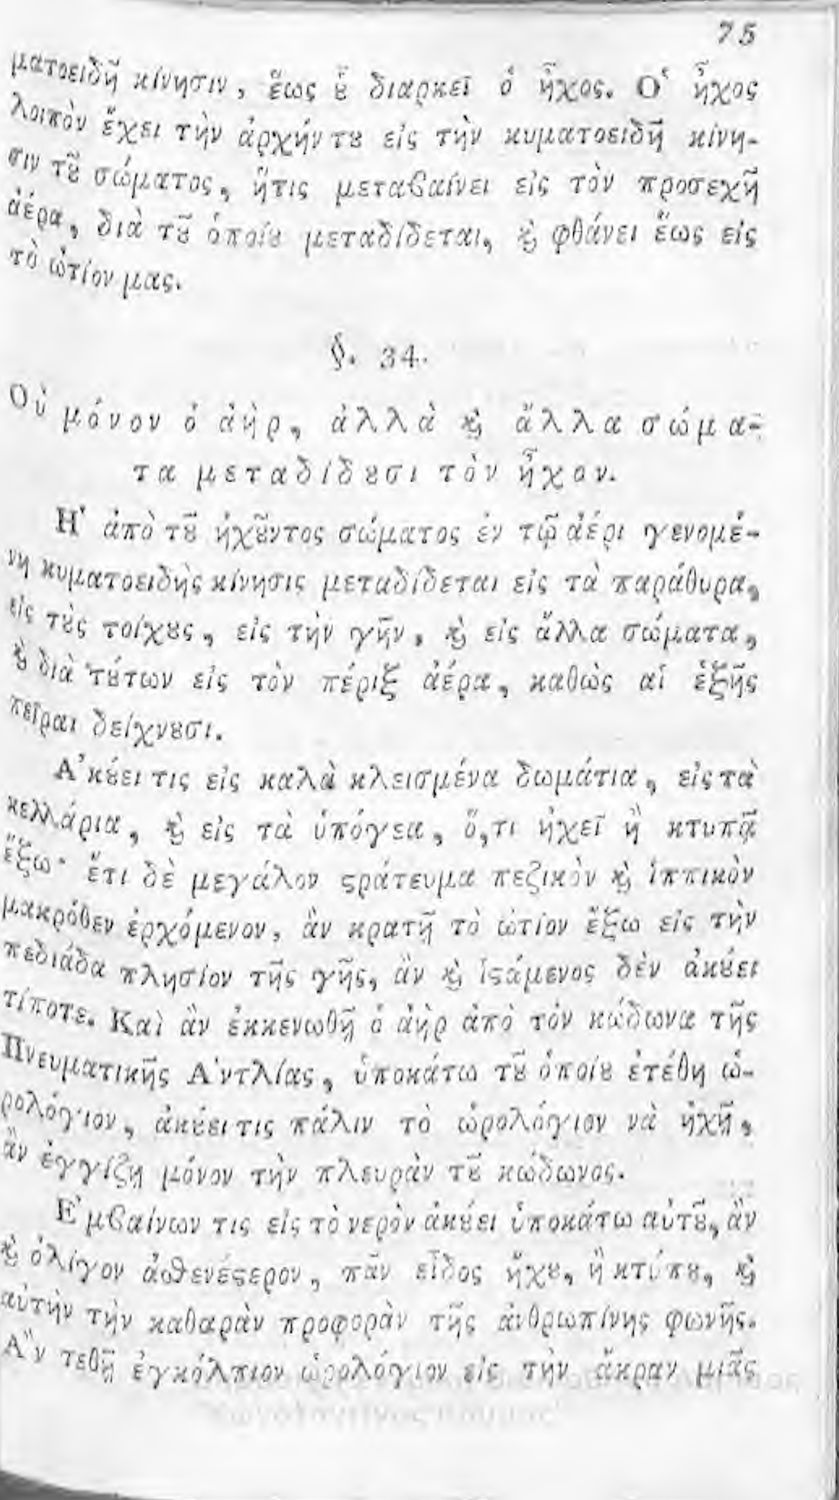 75
ματοειδῆ κίνησιν, ἕως ȣ̔͂ διαρκεῖ ὁ ἦχος. Ὁ ἦχος
λοιπὸν ἔχει τὴν ἀρχήντȣ εἰς τὴν κυματοειδῆ κίνη-
σιν τȣ͂ σώματος, ἥτις μεταβαίνει εἰς τὸν προσεχῆ
ἀέρα, διὰ τȣ͂ ὁποίȣ μεταδίδεται, ϗ φθάνει ἕως εἰς
τὸ ὠτίον μας.
§. 34.
Οὐ μόνον ὁ ἀὴρ, ἀλλὰ ϗ ἄλλα σώμα-
τα μεταδίδȣσι τὸν ἦχον.
Ἡ ἀπὸ τȣ͂ ἠχȣ͂ντος σώματος ἐν τῷ ἀέρι γενομέ-
νη κυματοειδὴς κίνησις μεταδίδεται εἰς τὰ παράθυρα,
εἰς τȣ̀ς τοίχȣς, εἰς τὴν γῆν, ϗ εἰς ἄλλα σώματα,
ϗ διὰ τȣ́των εἰς τὸν πέριξ ἀέρα, καθὼς αἱ ἑξῆς
πεῖραι δείχνȣσι.
Ἀκȣ́ει τις εἰς καλὰ κλεισμένα δωμάτια, εἰς τὰ
κελλάρια, ϗ εἰς τὰ ὑπόγεα, ὅ,τι ἠχεῖ ἢ κτυπᾷ
ἔξω· ἔτι δὲ μεγάλον ϛράτευμα πεζικὸν ϗ ἱππικὸν
μακρόθεν ἐρχόμενον, ἂν κρατῇ τὸ ὠτίον ἔξω εἰς τὴν
πεδιάδα πλησίον τῆς γῆς, ἂν ϗ ἱϛάμενος δὲν ἀκȣ́ει
τίποτε. Καὶ ἂν ἐκκενωθῇ ὁ ἀὴρ ἀπὸ τὸν κώδωνα τῆς
Πνευματικῆς Ἀντλίας, ὑποκάτω τȣ͂ ὁποίȣ ἐτέθη ὡ-
ρολόγιον, ἀκȣ́ει τις πάλιν τὸ ὡρολόγιον νὰ ἠχῇ,
ἂν ἐγγίζῃ μόνον τὴν πλευρὰν τȣ͂ κώδωνος.
Ἐμβαίνων τις εἰς τὸ νερὸν ἀκȣ́ει ὑποκάτω αὐτȣ͂, ἂν
ϗ ὀλίγον ἀσθενέϛερον, πᾶν εἶδος ἤχȣ, ἢ κτύπȣ, ϗ
αὐτὴν τὴν καθαρὰν προφορὰν τῆς ἀνθρωπίνης φωνῆς.
Ἂν τεθῇ ἐγκόλπιον ὡρολόγιον εἰς τὴν ἄκραν μιᾶς